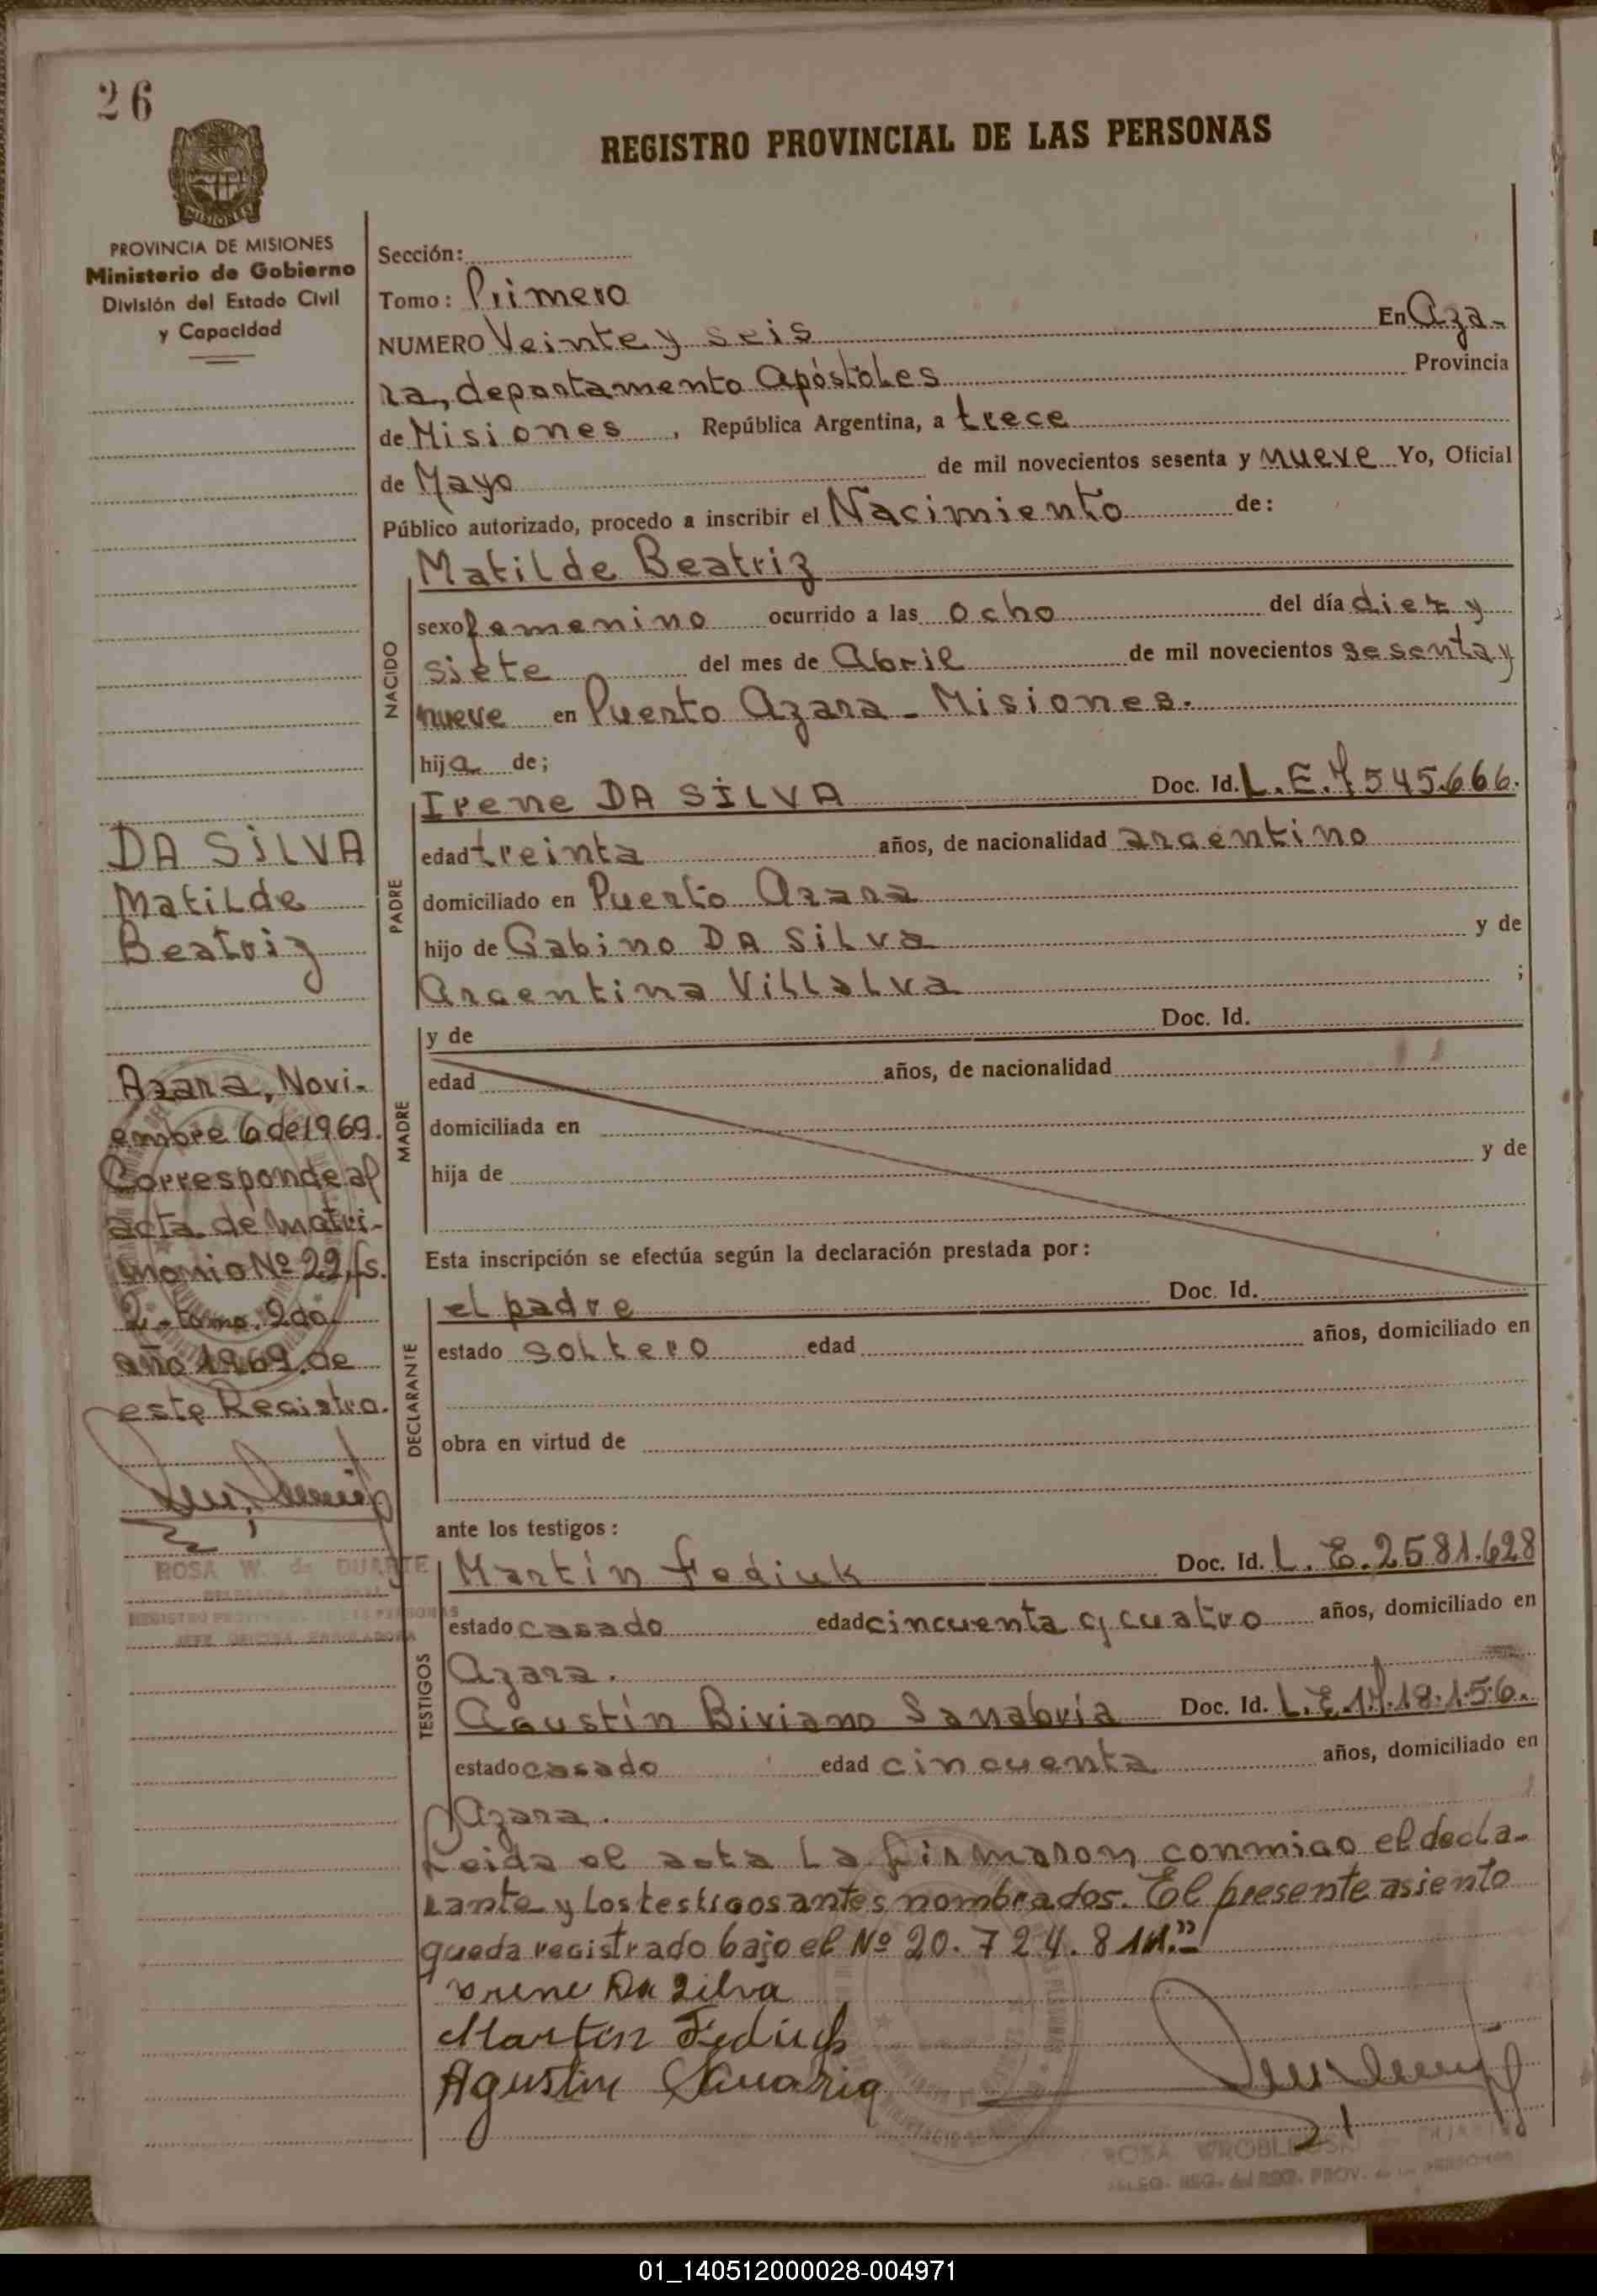 26
REGISTRO PROVINCIAL DE LAS PERSONAS
MISIONES
PROVINCIA DE MISIONES
Ministerio de Gobierno
División del Estado Civil
y Capacidad
Sección:
Tomo: Primero
NUMERO Veinte y seis En Aza-
ra, departamento Apóstoles Provincia
de Misiones, República Argentina, a trece
de Mayo de mil novecientos sesenta y nueve Yo, Oficial
Público autorizado, procedo a inscribir el Nacimiento de:
NACIDO
Matilde Beatriz
sexo femenino ocurrido a las ocho del día diez y
siete del mes de Abril de mil novecientos sesenta y
nueve en Puerto Azara - Misiones.
hija de;
PADRE
Irene DA SILVA Doc. Id. L.E. 7545.666.
edad treinta años, de nacionalidad argentino
domiciliado en Puerto Azara
hijo de Gabino DA Silva y de
Argentina Villalva ;
MADRE
y de Doc. Id.
edad años, de nacionalidad
domiciliada en
hija de y de
Esta inscripción se efectúa según la declaración prestada por:
DECLARANTE
el padre Doc. Id.
estado soltero edad años, domiciliado en
obra en virtud de
ante los testigos:
TESTIGOS
Martín Fediuk Doc. Id. L.E. 2581.628
estado casado edad cincuenta y cuatro años, domiciliado en
Azara.
Agustín Biviano Sanabria Doc. Id. L.E.
estado casado edad cincuenta años, domiciliado en
Azara.
Leida el acta la firmaron conmigo el decla-
rante y los testigos antes nombrados. El presente asiento
queda registrado bajo el Nº 20.724.811."
Irene Da Silva
Martin Fediuk
Agustin Sanabria
ROSA WROBLEWSKI DUARTE
DELEG. REG. del REG. PROV. de las PERSONAS
DA SILVA
Matilde
Beatriz
Azara, Novi-
embre 6 de 1969.
Corresponde al
acta de matri-
monio Nº 22, fs.
2 - tomo 2do
año 1969 de
este Registro.
ROSA W. de DUARTE
DELEGADA REGIONAL
REGISTRO PROVINCIAL DE LAS PERSONAS
JEFE OFICINA ENROLADORA
01_140512000028-004971